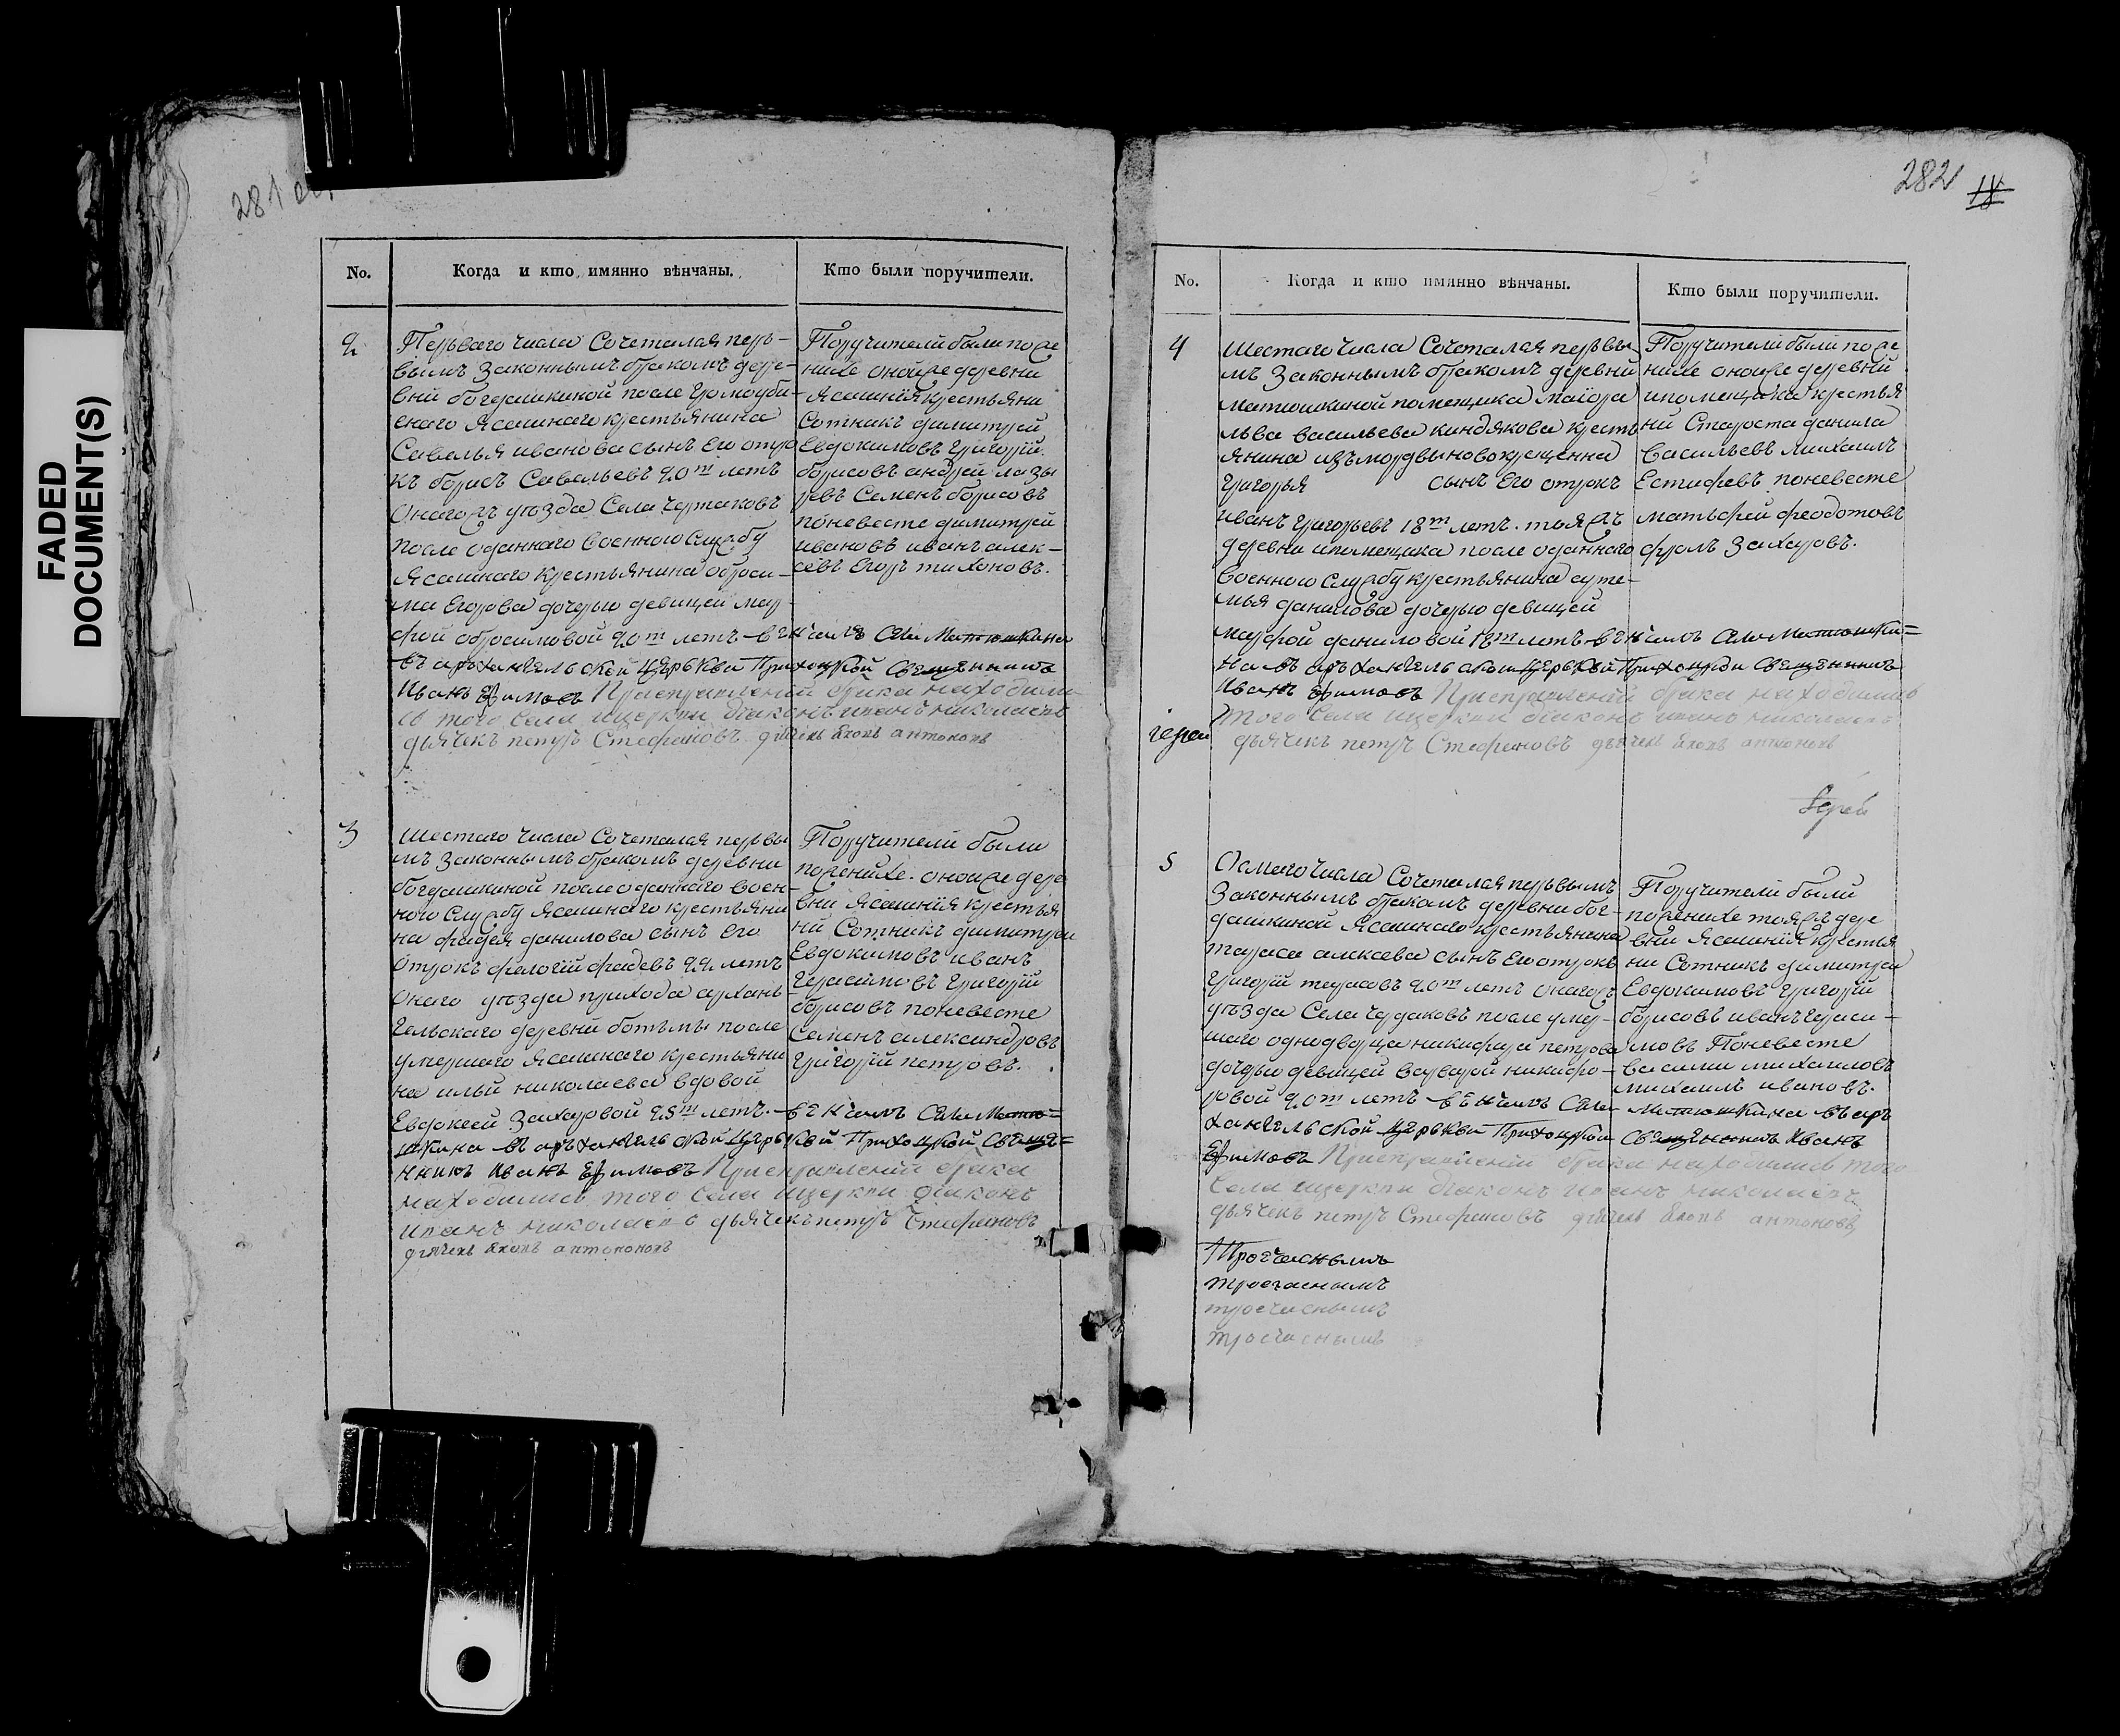 FADED
DOCUMENT(S)
281 об.
No.
Когда и кто имянно вѣнчаны.
Кто были поручители.
2
Перьваго числа Сочетался перъ-
вымъ Законнымъ бракомъ дере-
вни богдашкиной после
Ясашнаго крестьянина
Савелья иванова сынъ Его отро
къ борисъ Савельевъ 20ти летъ
Онагожъ уѣзда Села
после отданнаго военного Службу
Ясашнаго крестьянина аброси-
ма Егорова дочерью девицей мар-
фой абросимовой 20ти летъ вѣнчалъ Села Матюшкина
въ архангельской церькви Приходской Священникъ
Иванъ Ефимовъ При отправлений брака находили-
сь того Села ицеркви диаконъ иванъ николаевъ
дьячекъ петръ Стефановъ дьячекъ яковъ антоновъ
Поручители были пожe
нихе оноиже деревни
Ясашнія крестьяни
Сотникъ димитрей
Евдокимовъ Григорій
борисовъ андрей лазы
ревъ Семенъ борисовъ
поневесте димитрей
ивановъ иванъ алек-
севъ Егоръ тихоновъ.
3
Шестаго числа Сочетался первы
мъ Законнымъ бракомъ деревни
богдашкиной после отданнаго воен-
ного Службу Ясашнаго крестьяни
на фадея данилова сынъ Его
Отрокъ фадевъ 22 летъ
Онаго уѣзда прихода архань
гельскаго деревни ботьмы после
умершаго Ясашнаго крестьяни
на ильи николаева вдовой
Евдокеей Захаровой 25ти летъ вѣнчалъ Села Матю=
шкина въ архангельской церькви Приходской Свяще=
нникъ Иванъ Ефимовъ При отправлений брака
находились того Села ицеркви диаконъ
иванъ николаевъ дьячекъ петръ Стефановъ
дьячекъ яковъ антоновъ
Поручители были
поженихе. оноиже дере
вни Ясашнія крестья
ни Сотникъ димитрей
Евдокимовъ иванъ
Герасимовъ Григорій
борисовъ поневесте
Семенъ александровъ
Григорій петровъ.
282 18
No.
Когда и кто имянно вѣнчаны.
Кто были поручители.
4
Шестаго числа Сочетался первы
мъ Законнымъ бракомъ деревни
матюшкиной помещика маіора
льва васильева киндякова кресть
янина изъ мордвы новокрещенна
Григорья сынъ Его отрокъ
иванъ Григорьевъ 18ти летъ. тояжъ
деревни ипомещика после отданнаго
военного Службу крестьянина
данилова дочерью девицей
марфой даниловой 18ти летъ вѣнчалъ Села Матюшки=
на въ архангельской церькви Приходской Священникъ
Иванъ Ефимовъ При отправлений брака находились
того Села ицеркви диаконъ иванъ николаевъ
дьячекъ петръ Стефановъ дьячекъ яковъ антоновъ
Поручители были поже
нихе оноиже деревни
ипомещика крестья
ни Староста данила
васильевъ михаилъ
Естифевъ поневесте
матьфей феодотовъ
фролъ Захаровъ.
іерей
Іерей
5
Осмаго числа Сочетался перьвымъ
Законнымъ бракомъ деревни бог-
дашкиной Ясашнаго крестьянина
тараса алексева сынъ Его отрокъ
Григорій тарасовъ 20ти летъ онагожъ
уѣзда Села Чердаковъ после умер-
шаго однодворца никифора петрова
дочерью девицей варварой никифо-
ровой 20ти летъ вѣнчалъ Села Матюшкина въ арх
хангельской церькви Приходской Священникъ Иванъ
Ефимовъ При отправлений брака находились того
Села ицеркви диаконъ иванъ николаевъ
дьячекъ петръ Стефановъ дьячекъ яковъ антоновъ
Поручители были
поженихе тояжъ дере
вни Ясашнія крестья
ни Сотникъ димитрей
Евдокимовъ Григорій
борисовъ иванъ Гераси-
мовъ Поневесте
василий михаиловъ
михаилъ ивановъ.